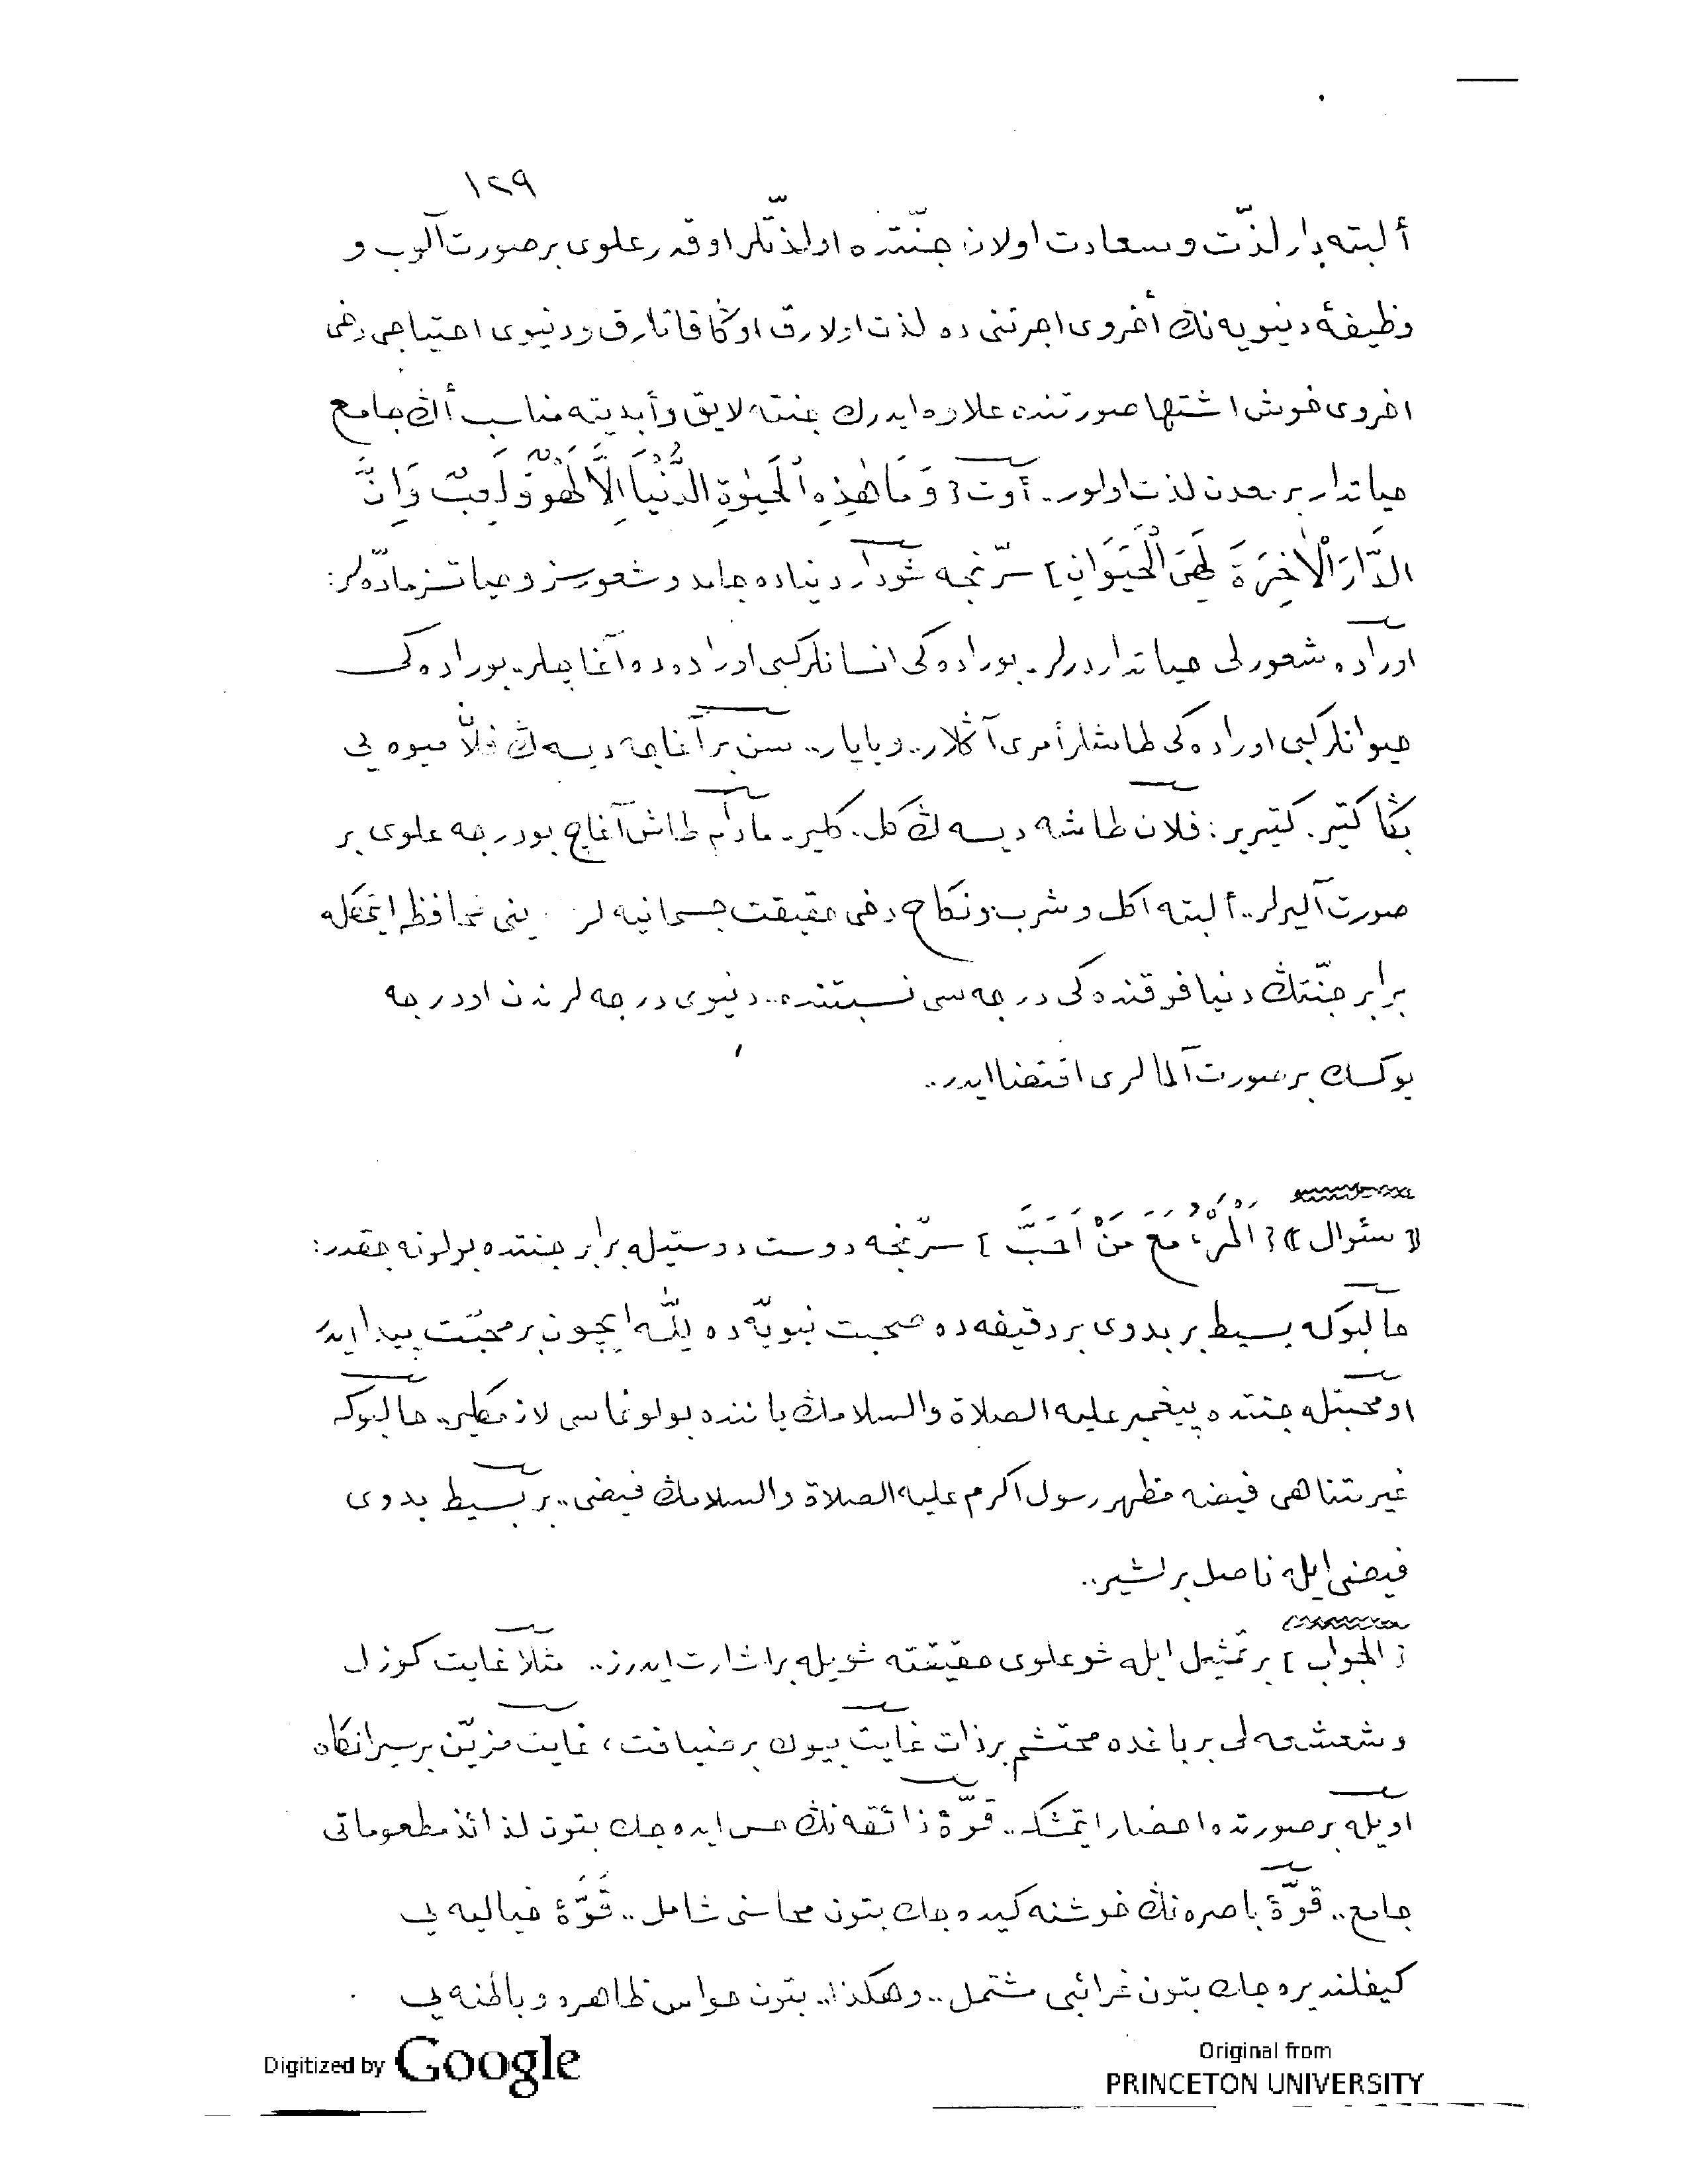 ١٢٩
ألبته دار لذّت و سعادت اولان جنّتده او لذّتلر او قدر علوی بر صورت آلوب و
وظيفۀ دنيويه نڭ أخروی اجرتنی ده لذت اولارق اوڭا قاتارق و دنيوی احتياجی دخی
اخروی خوش اشتها صورتنده علاوه ايدرك جنته لايق و أبديته مناسب أڭ جامع
حياتدار بر معدن لذت اولور.. أوت [ وَمَا هٰذِهِ الْحَيٰوةِ الدُّنْيَا اِلَّا لَهْوٌ وَلَعِبٌ وَاِنَّ
الدَّارَ الْاٰخِرَةَ لَهِىَ الْحَيَوَانِ ] سرّنجه شو دار دنياده جامد و شعورسز و حياتسز مادّه لر:
اوراده شعورلی حياتداردرلر.. بوراده كی انسانلر كبی اوراده ده آغاجلر.. بوراده كی
حيوانلر كبی اوراده كی طاشلر أمری آڭلار.. و ياپار.. سن بر آغاجه ديسه ڭ فلان ميوه يی
بڭا كتير. كتيرير: فلان طاشه ديسه ڭ گل. گلير.. مادام طاش آغاج بو درجه علوی بر
صورت آليرلر.. ألبته اكل و شرب و نكاح دخی حقيقت جسمانيه لر ينی محافظه ايتمكله
برابر جنّتڭ دنيا فوقنده كی درجه سی نسبتنده.. دنيوی درجه لرندن او درجه
يوكسك بر صورت آلمالری اقتضا ايدر..
« سئوال » [ اَلْمَرْءُ مَعَ مَنْ اَحَبَّ ] سرّنجه دوست دوستيله برابر جنتده بولونه جقدر:
حالبوكه بسيط بر بدوی بر دقيقه ده صحبت نبويّه ده للّه ايچون بر محبّت پيدا ايدر
او محبتله جنتده پيغمبر عليه الصلاة والسلامڭ ياننده بولونماسی لازمگلير.. حالبوكه
غير متناهی فيضه مظهر رسول اكرم عليه الصلاة والسلامڭ فيضی.. بر بسيط بدوی
فيضی ايله ناصل برلشير..
[ الجواب ] بر تمثيل ايله شو علوی حقيقته شويله بر اشارت ايدرز.. مثلا غايت كوزل
و شعشعه لی بر باغده محتشم بر ذات غايت بيوك بر ضيافت، غايت مزيّن بر سيرانگاه
اويله بر صورتده احضار ايتمش كه.. قوّۀ ذائقه نڭ حس ايده جك بتون لذائذ مطعوماتی
جامع.. قوّۀ باصره نڭ خوشنه گيده جك بتون محاسنی شامل.. قوّۀ خياليه يی
كيفلنديره جك بتون غرائبی مشتمل.. و هكذا.. بتون حواس ظاهره و باطنه يی
Digitized by Google
Original from
PRINCETON UNIVERSITY